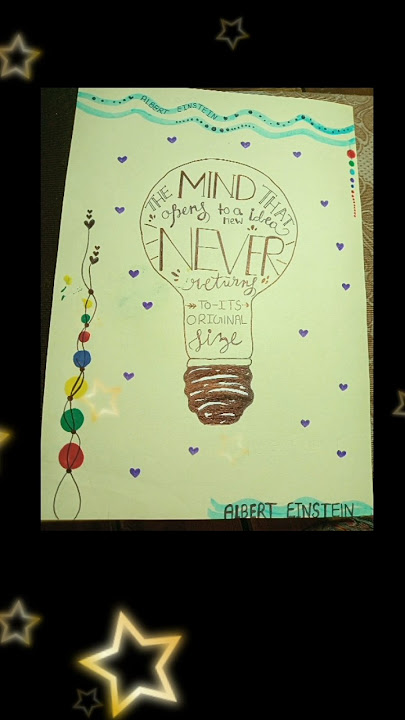 ALBERT EINSTEIN
THE MIND THAT
opens to a new idea
NEVER
returns
TO-ITS
ORIGINAL
size
ALBERT EINSTEIN